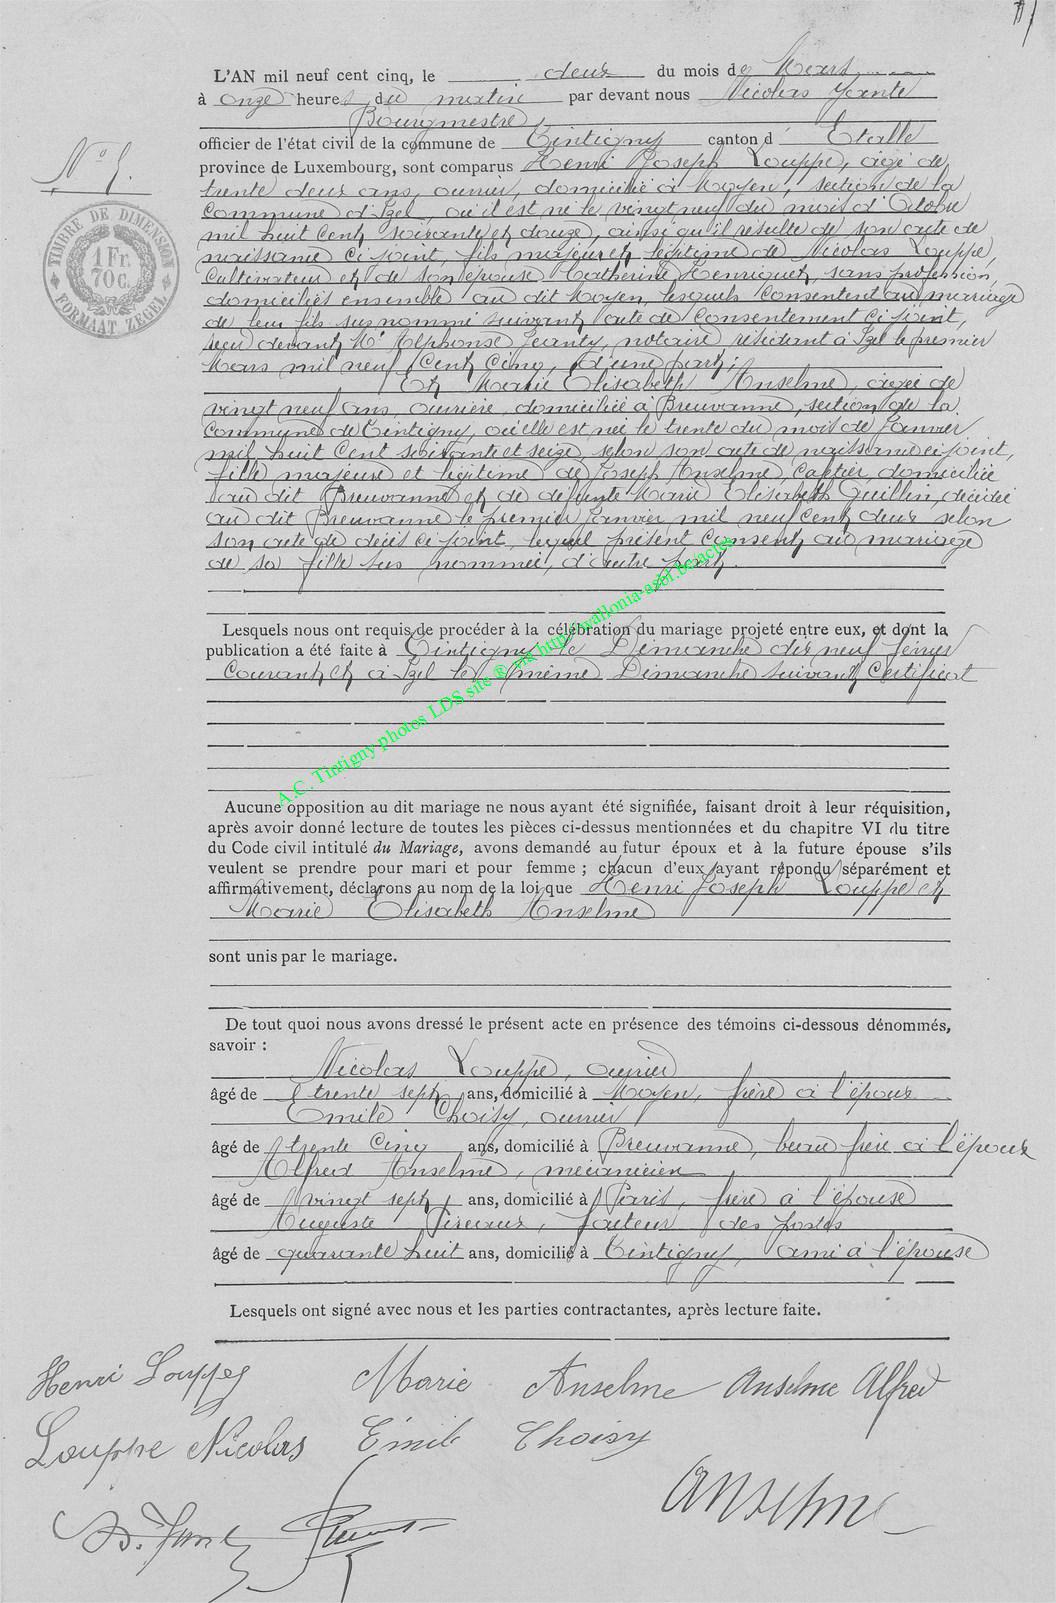 L'AN mil neuf cent cinq, le deux du mois de Mars
à onze heures du matin par devant nous Nicolas
Bourgmestre
officier de l'état civil de la commune de Tintigny canton d' Etalle
N° 5.
province de Luxembourg, sont comparus Henri Joseph Louppe, âgé de
trente deux ans, ouvrier, domicilié à Moyen, section de la
Commune d'Izel, où il est né le vingt neuf du mois d'Octobre
mil huit Cent soixante et douze, ainsi qu'il résulte de son acte de
naissance ci joint, fils majeur et légitime de Nicolas Louppe,
Cultivateur et de son épouse Catherine Henriquet, sans profession,
domiciliés ensemble au dit Moyen, lesquels Consentent au mariage
de leur fils sus nommé suivant acte de Consentement ci joint,
reçu devant Mr Alphonse Jeanty, notaire résidant à Izel le premier
Mars mil neuf Cent Cinq, d'une part;
Et Marie Elisabeth Anselme, âgée de
vingt neuf ans, ouvrière, domiciliée à Breuvanne, section de la
Commune de Tintigny, où elle est née le trente du mois de Janvier
mil huit Cent soixante et seize, selon son acte de naissance ci joint,
fille majeure et légitime de Joseph Anselme, domicilié
au dit Breuvanne et de défunte Marie Elisabeth Guillin, décédée
au dit Breuvanne le premier Janvier mil neuf Cent deux selon
son acte de décès ci joint, lequel présent Consent au mariage
de sa fille sus nommée, d'autre part.
TIMBRE DE DIMENSION
1 Fr.
70 C.
FORMAAT ZEGEL
Lesquels nous ont requis de procéder à la célébration du mariage projeté entre eux, et dont la
publication a été faite à Tintigny le Dimanche dix neuf Février
Courant et à Izel le même Dimanche suivant Certificat
A.C. Tintigny photos LDS site ® via http://wallonia-asbl.be/actes
Aucune opposition au dit mariage ne nous ayant été signifiée, faisant droit à leur réquisition,
après avoir donné lecture de toutes les pièces ci-dessus mentionnées et du chapitre VI du titre
du Code civil intitulé du Mariage, avons demandé au futur époux et à la future épouse s'ils
veulent se prendre pour mari et pour femme ; chacun d'eux ayant répondu séparément et
affirmativement, déclarons au nom de la loi que Henri Joseph Louppe et
Marie Elisabeth Anselme
sont unis par le mariage.
De tout quoi nous avons dressé le présent acte en présence des témoins ci-dessous dénommés,
savoir :
Nicolas Louppe, ouvrier
âgé de trente sept ans, domicilié à Moyen, frère à l'époux
Emile Choisy, ouvrier
âgé de trente Cinq ans, domicilié à Breuvanne, beau frère à l'époux
Alfred Anselme, mécanicien
âgé de vingt sept ans, domicilié à Paris, frère à l'épouse
Auguste facteur des postes
âgé de quarante huit ans, domicilié à Tintigny, ami à l'épouse
Lesquels ont signé avec nous et les parties contractantes, après lecture faite.
Henri Louppe Marie Anselme Anselme Alfred
Louppe Nicolas Émile Choisy
Anselme